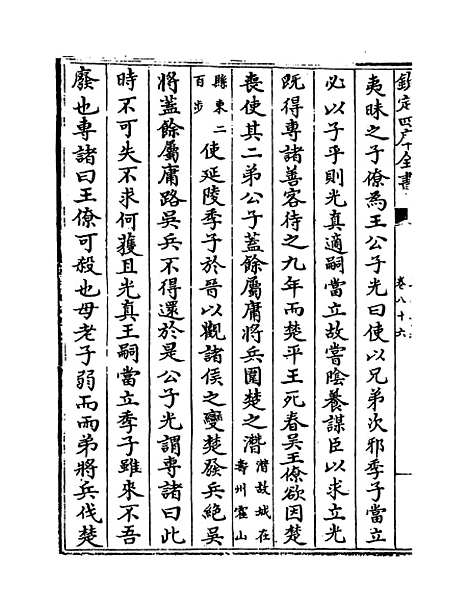 欽定四庫全書
卷八十六
夷昧之子僚為王公子光曰使以兄弟次邪季子當立
必以子乎則光真適嗣當立故嘗陰養謀臣以求立光
既得專諸善客待之九年而楚平王死春吳王僚欲因楚
喪使其二弟公子蓋餘屬庸將兵圍楚之灊灊故城在壽州霍山
縣東二百步使延陵季子於晉以觀諸侯之變楚發兵絕吳
將蓋餘屬庸路吳兵不得還於是公子光謂專諸曰此
時不可失不求何獲且光真王嗣當立季子雖來不吾
廢也專諸曰王僚可殺也母老子弱而兩弟將兵伐楚